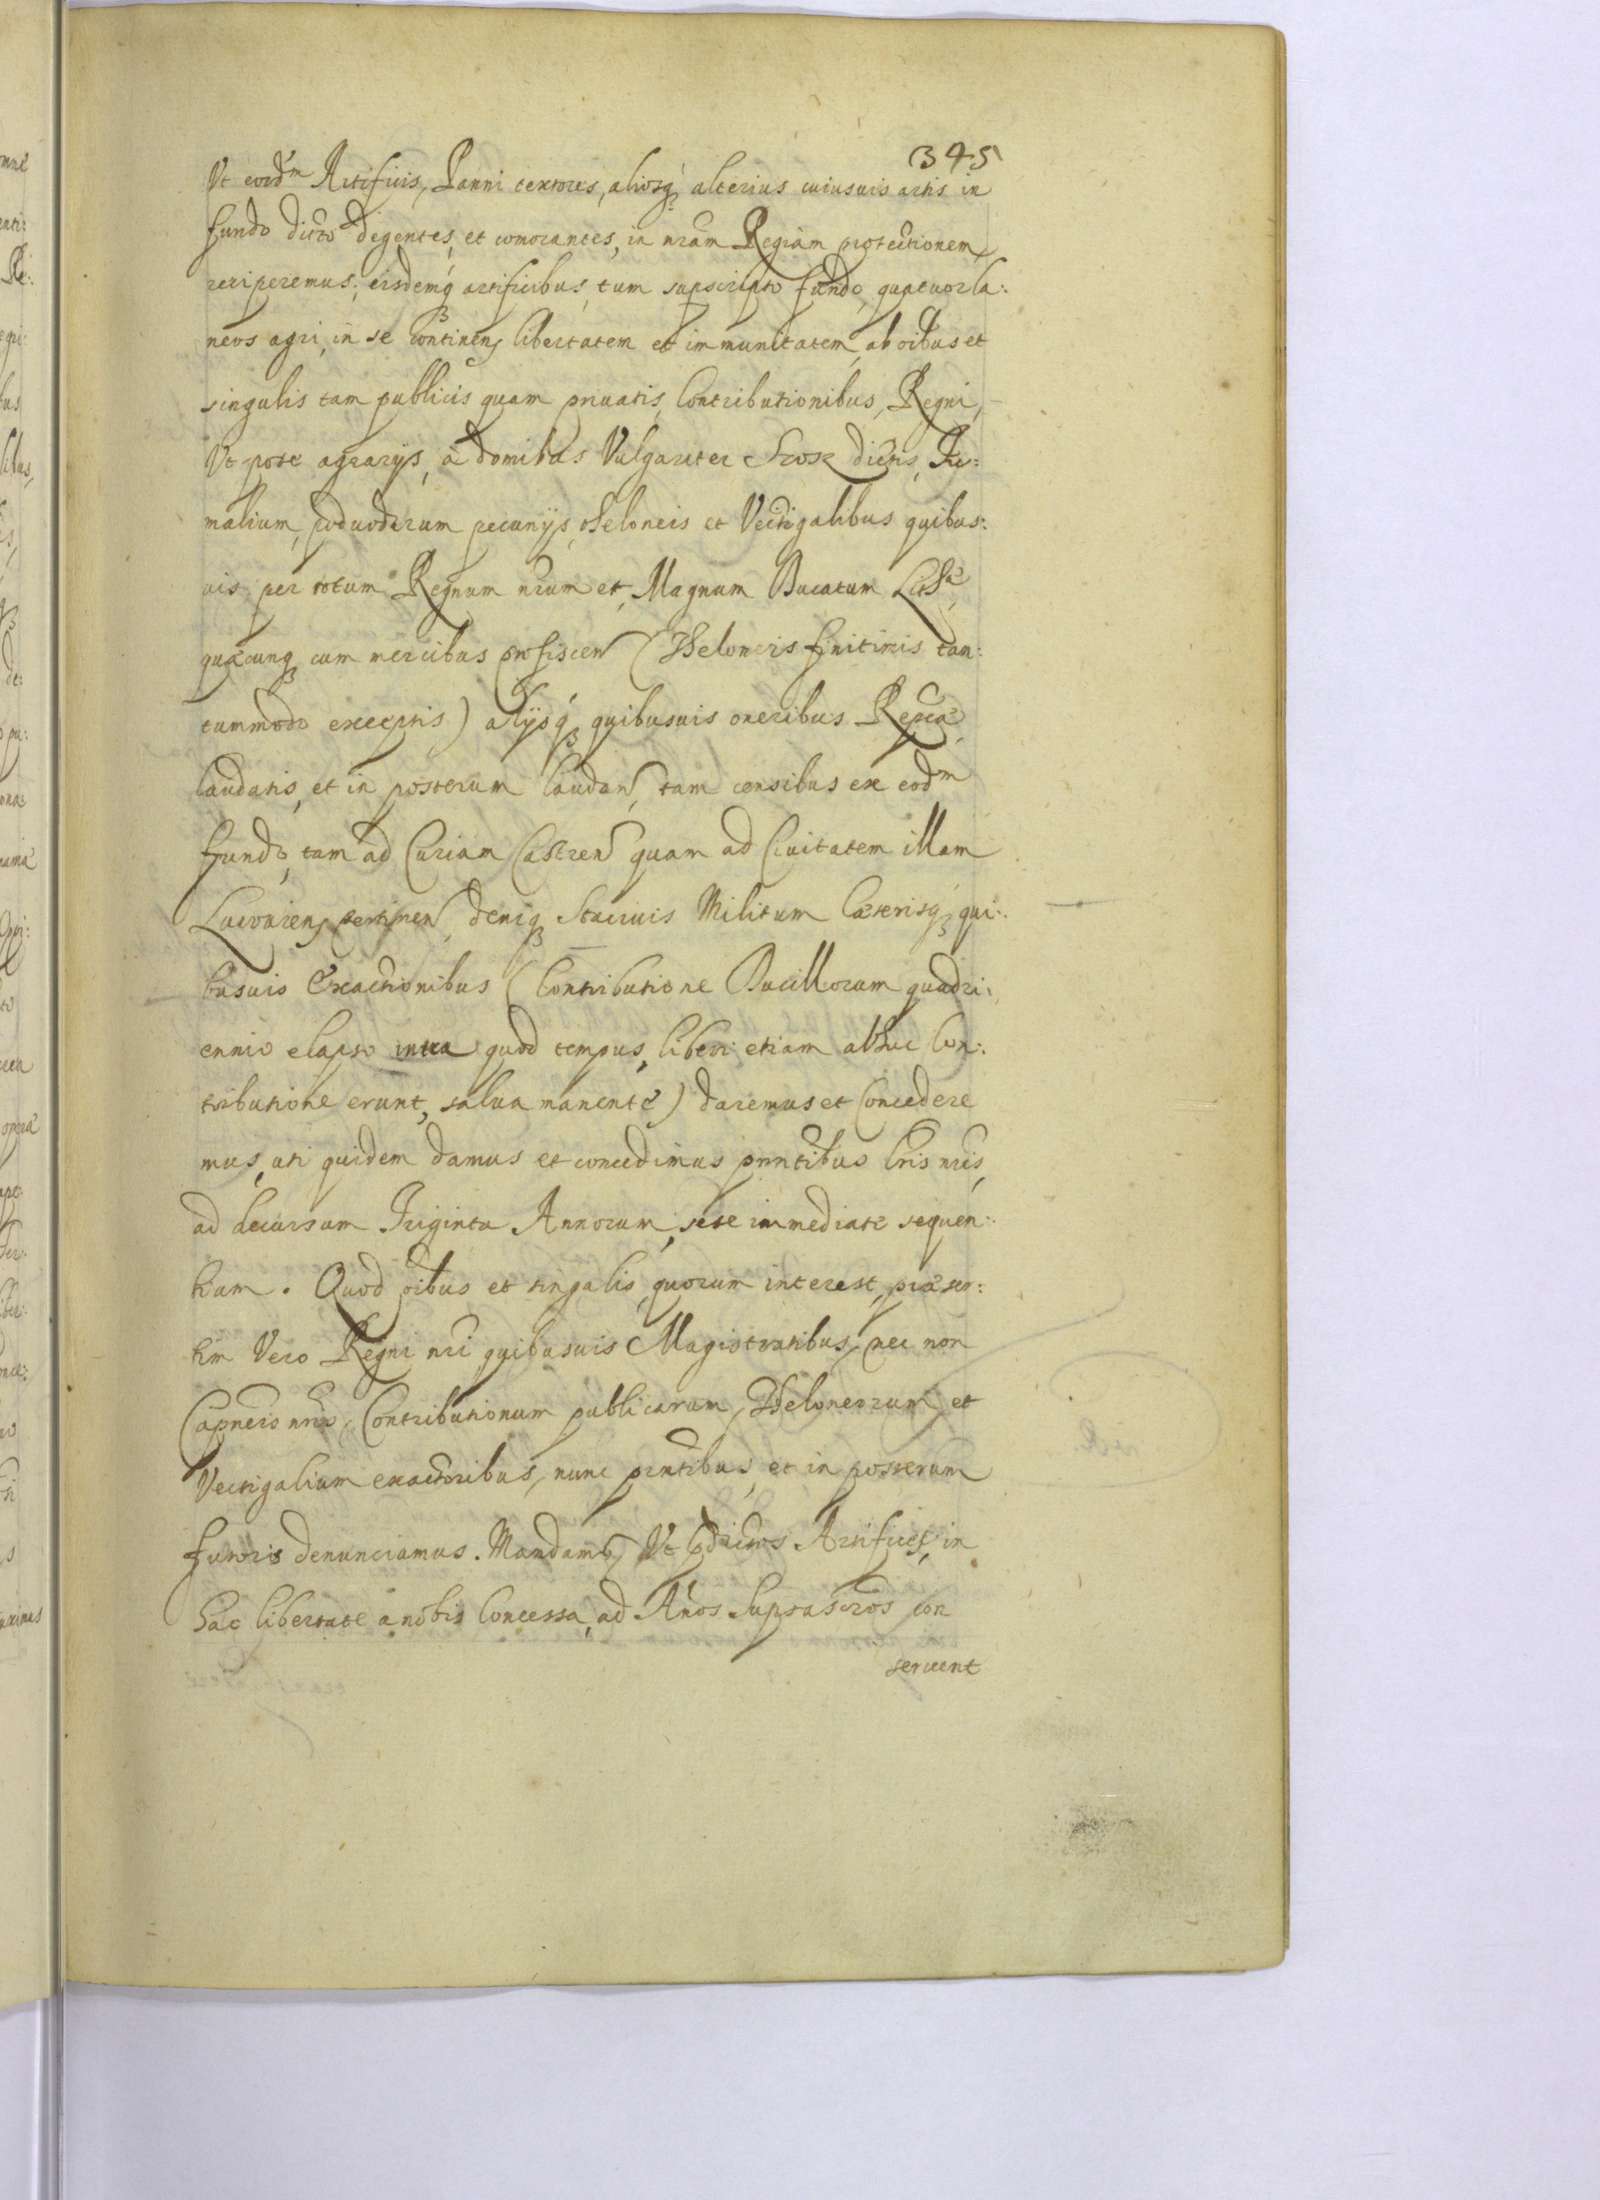 345
Vt eosdm Artificis, Panni textores, aliosq alterius cuiusuis artis in
fundo dicto degentes, et comorantes, in nram Regiam protectionem
reciperemus; eisdemq artificibus, tum suprscripto fundo, quatuor la:
neos agri, in se continen libertatem et immunitatem, ab oibus et
singulis tam publicis quam priuatis, Contributionibus, Regni,
Vt pote agrarijs, à domibus Vulgariter Szosz dictis, Fu:
malium, podwodarum pecunijs, theloneis et Vectigalibus quibus:
uis per totum Regnum nrum et Magnum Ducatum Litt
quæcunq cum mercibus profiscen (Theloneis finitimis tan:
tummodo exceptis) alijsq quibusuis oneribus
laudatis, et in posterum laudan, tam censibus ex eodm
fundo, tam ad Curiam Castren quam ad Ciuitatem illam
pertinen, deniq Statiuis Militum Cæterisq qui:
busuis Exactionibus (Contributione Ducillorum quadri:
ennio elapso intra quod tempus, liberi etiam abhac Con:
tributione erunt, salua manente) daremus et Concedere
mus, uti quidem damus et concedimus pnntibus lris nris,
ad decursum Triginta Annorum, sese immediate sequen:
tium. Quod oibus et singulis, quorum interest, præser:
tim Vero Regni nri quibusuis Magistratibus, nec non
Capneis nris, Contributionum publicarum, Theloneorum, et
Vectigalium exactoribus, nunc pntibus, et in posterum
futuris denunciamus. Mandamus Vt pdictos Artifices, in
hac libertate a nobis Concessa, ad Annos Suprascros con
seruent